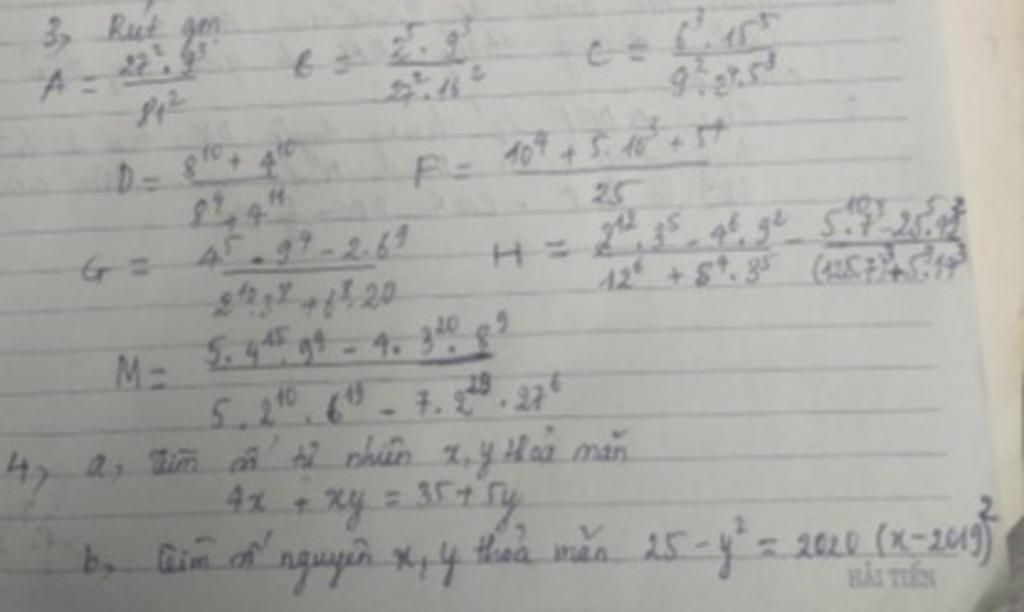 3, Rút gọn
A = \frac{27^2 \cdot 9^3}{81^2} B = \frac{2^5 \cdot 9^3}{27^2 \cdot 16^2} C = \frac{6^3 \cdot 15^5}{9^2 \cdot 2^4 \cdot 5^3}
D = \frac{8^{10} + 4^{10}}{8^4 + 4^{11}} F = \frac{10^4 + 5 \cdot 10^3 + 5^4}{25}
G = \frac{4^5 \cdot 9^4 - 2 \cdot 6^9}{2^{10} \cdot 3^8 + 6^8 \cdot 20} H = \frac{2^{12} \cdot 3^5 - 4^6 \cdot 9^2}{12^6 + 8^4 \cdot 3^5} -
M = \frac{5 \cdot 4^{15} \cdot 9^9 - 4 \cdot 3^{20} \cdot 8^9}{5 \cdot 2^{10} \cdot 6^{19} - 7 \cdot 2^{29} \cdot 27^6}
4, a, Tìm số tự nhiên x, y thoả mãn
4x + xy = 35 + 5y
b, Tìm số nguyên x, y thoả mãn 25 - y^2 = 2020 (x - 2019)^2
HẢI TIẾN